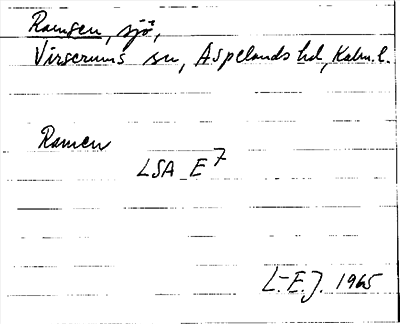 Ramsen, sjö,
Virserums sn, Aspelands hd, Kalm.l.
Ramen
LSA E7
L-E.J. 1965